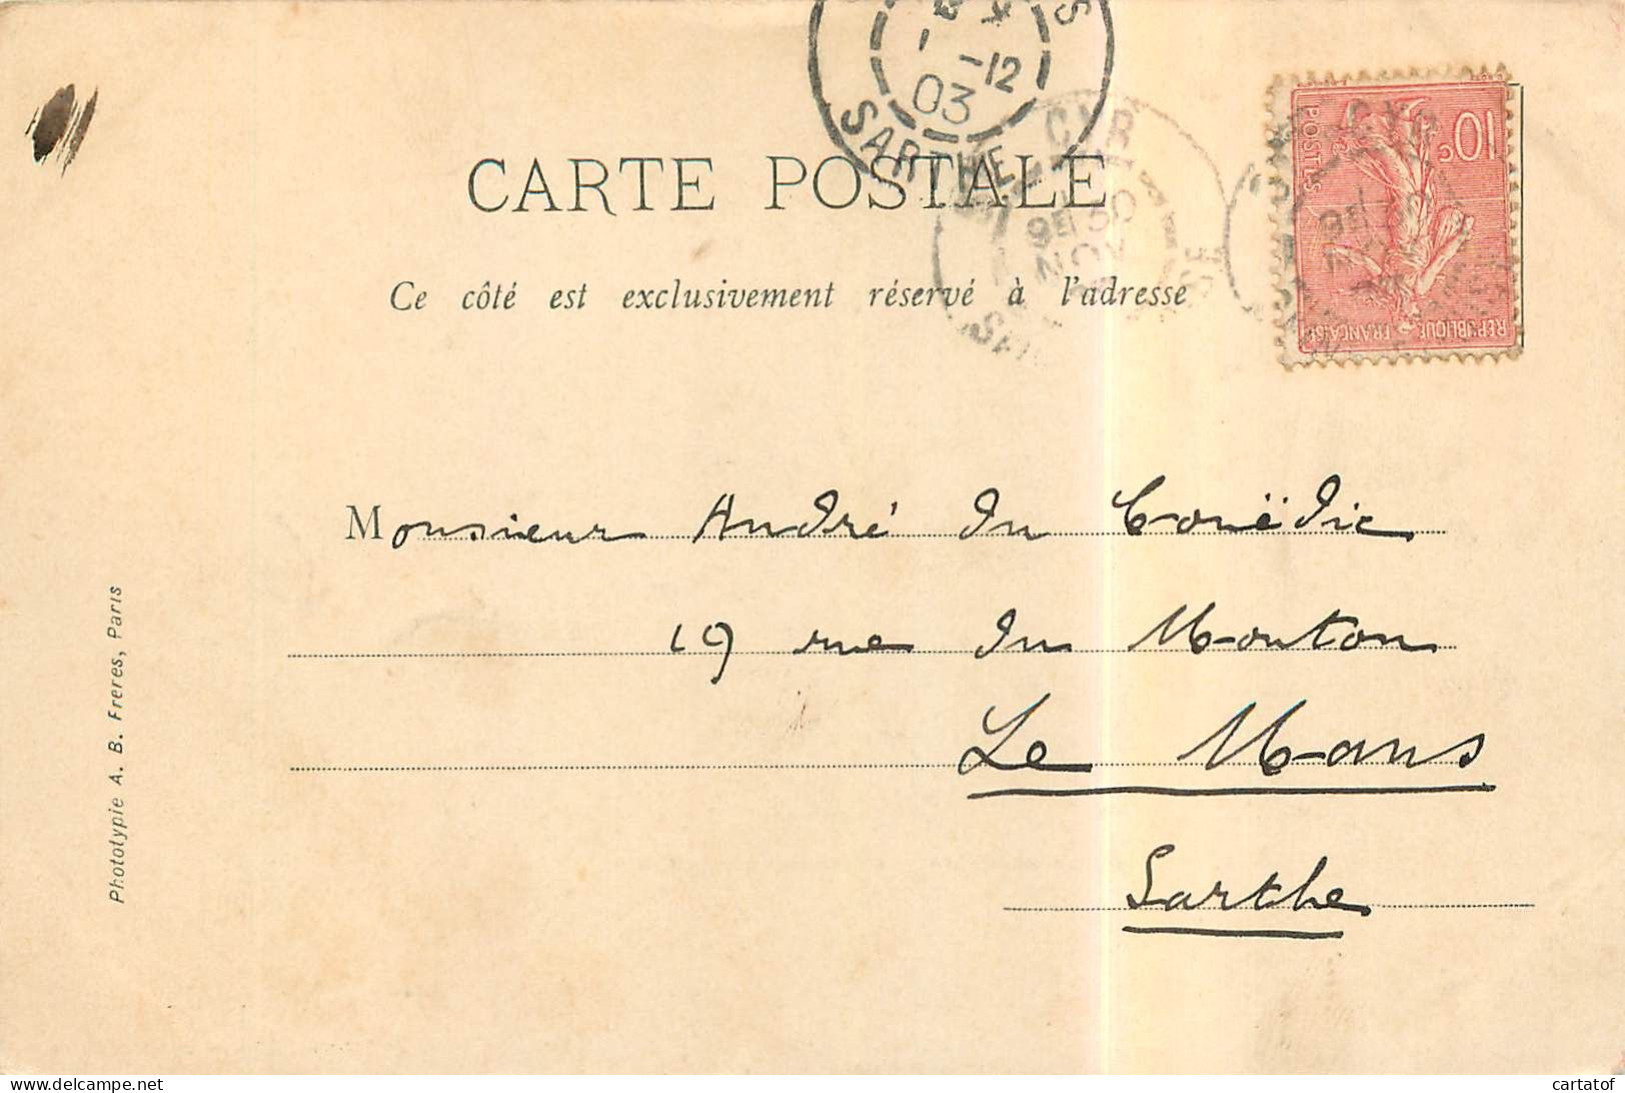 -12
03
SARTHE
CYR
NOV
CARTE POSTALE
10c
POSTES
REPUBLIQUE FRANÇAISE
Ce côté est exclusivement réservé à l'adresse
Monsieur André du Couëdic
19 rue du Mouton
Le Mans
Sarthe
Phototypie A. B. Freres, Paris
delcampe.net
cartatof